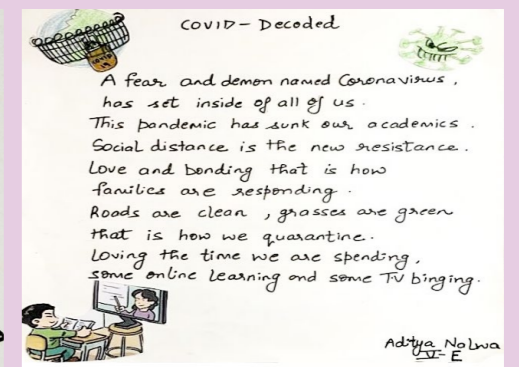 COVID - Decoded
A fear and demon named Coronavirus,
has set inside of all of us.
This pandemic has sunk our academics.
Social distance is the new resistance.
Love and bonding that is how
families are responding.
Roads are clean, grasses are green
that is how we quarantine.
Loving the time we are spending,
some online learning and some TV binging.
Aditya Nolwa
V-E